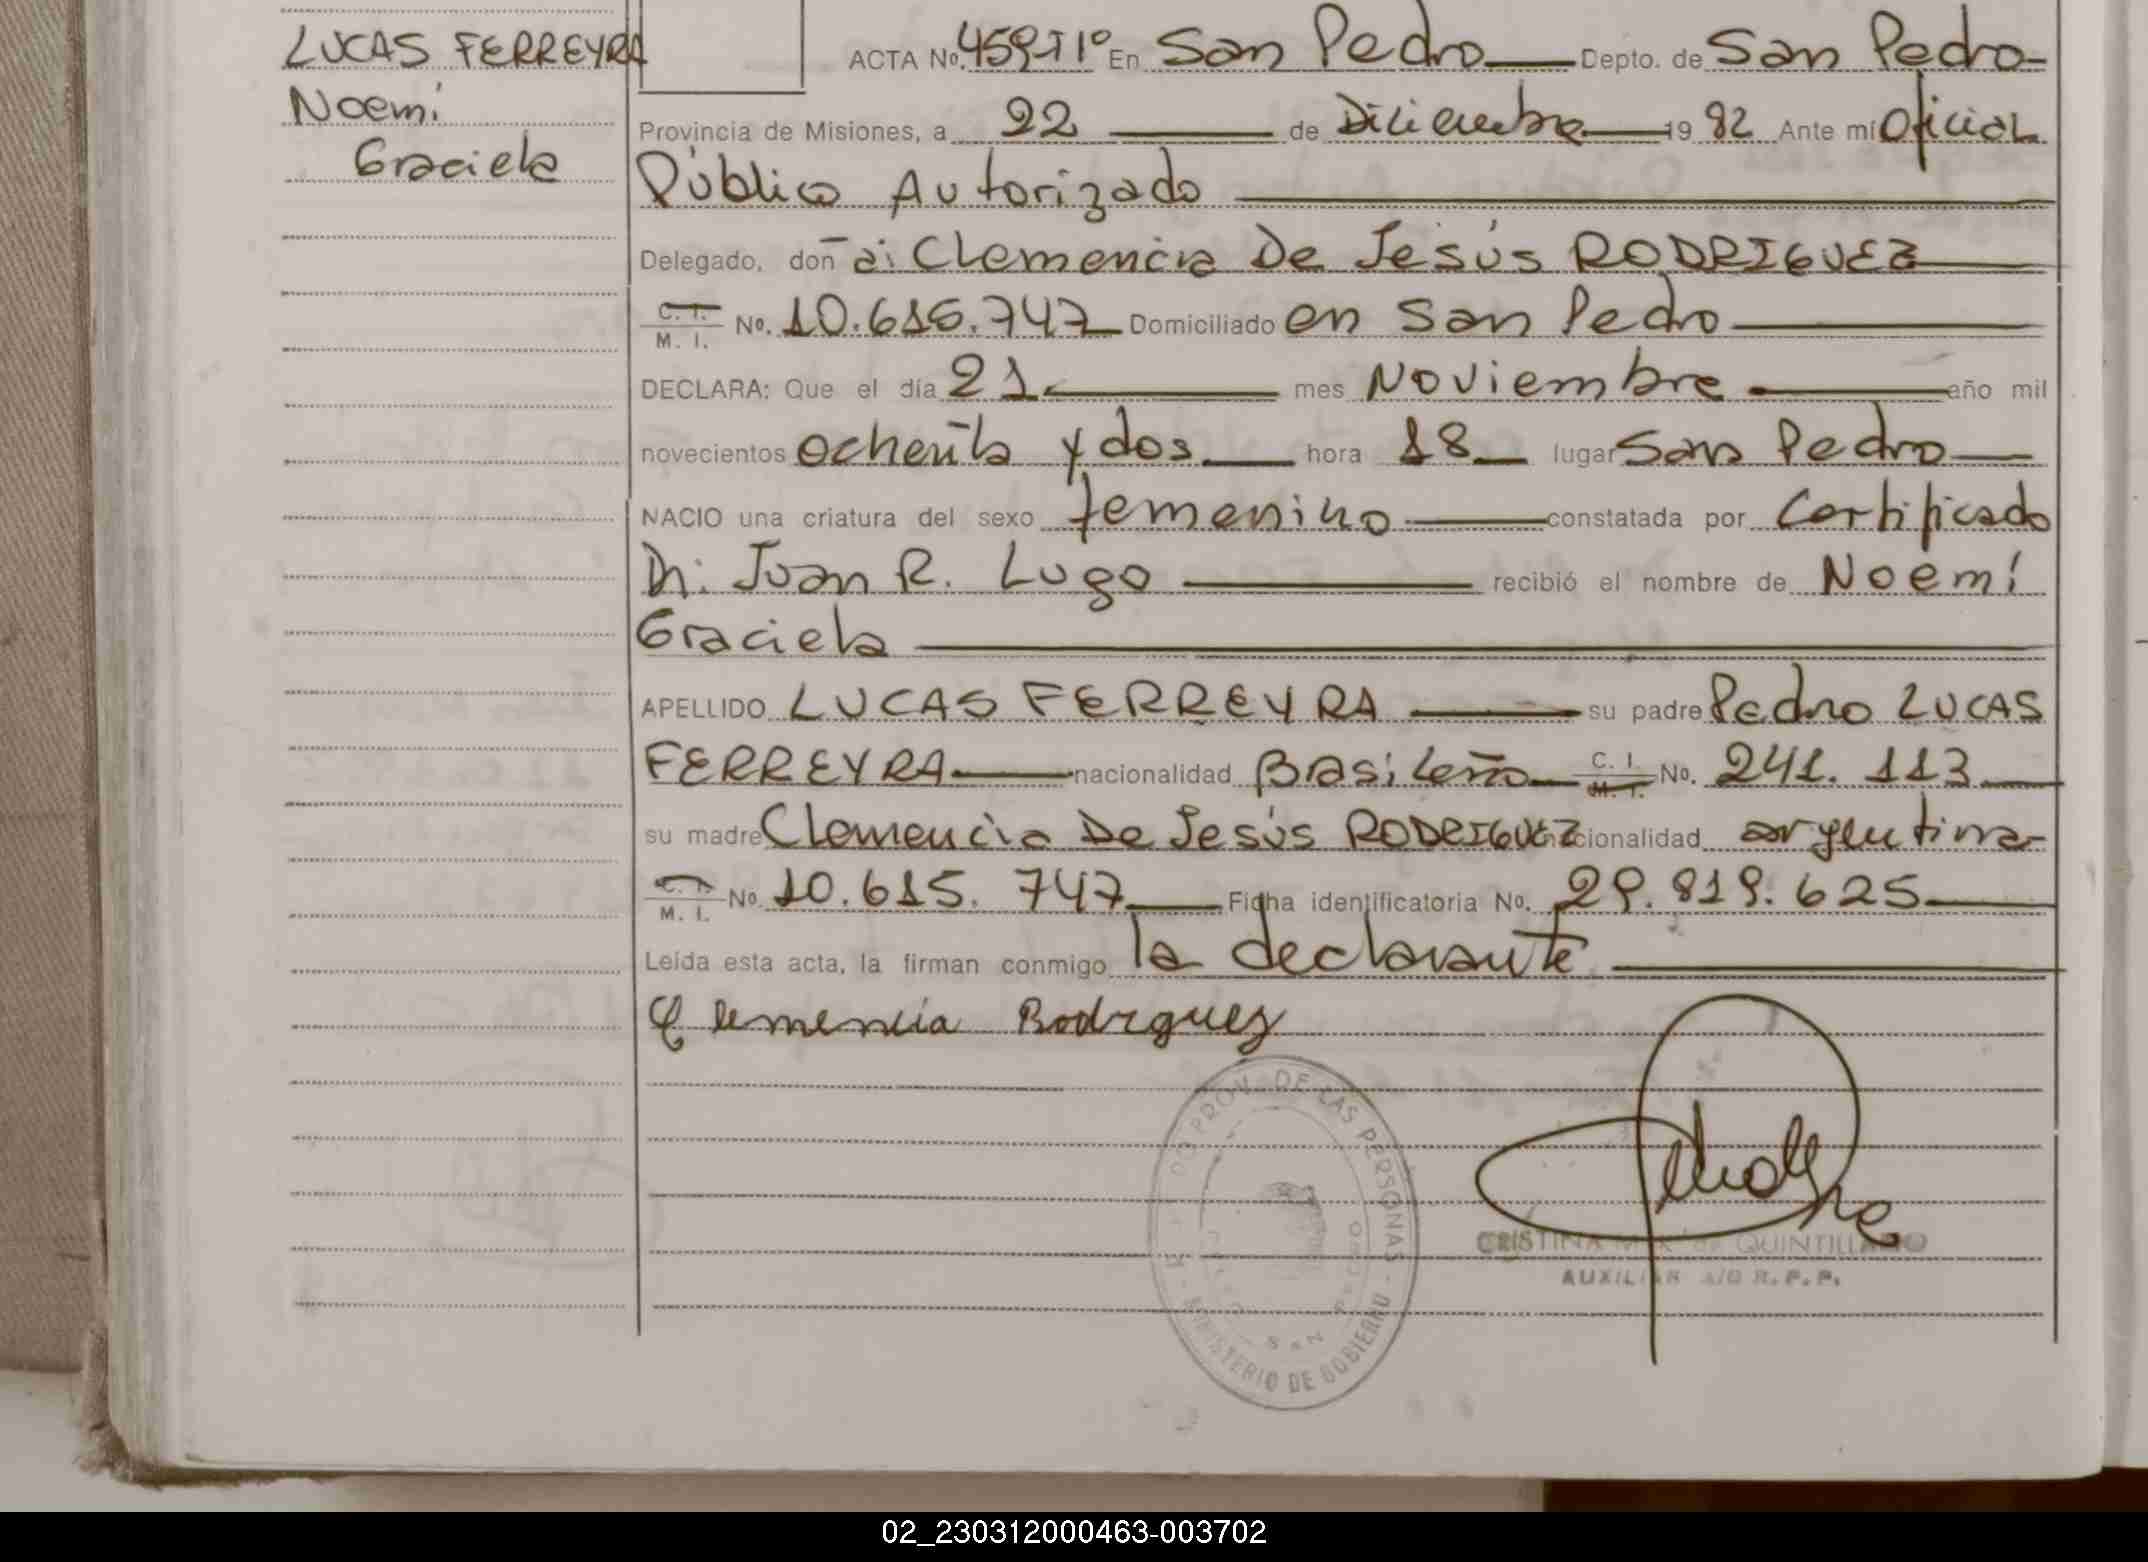 LUCAS FERREYRA
Noemí
Graciela
ACTA No. 459-T1º En San Pedro Depto. de San Pedro
Provincia de Misiones, a 22 de Diciembre 19 82 Ante mí Oficial
Público Autorizado
Delegado, don̄ a: Clemencia De Jesús RODRIGUEZ
C. I. M. I. No. 10.615.747 Domiciliado en San Pedro
DECLARA: Que el día 21 mes Noviembre año mil
novecientos ochenta y dos hora 18 lugar San Pedro
NACIO una criatura del sexo femenino constatada por Certificado
Dr. Juan R. Lugo recibió el nombre de Noemí
Graciela
APELLIDO LUCAS FERREYRA su padre Pedro LUCAS
FERREYRA nacionalidad Brasileño C. I. M. I. No. 241.113
su madre Clemencia De Jesús RODRIGUEZ nacionalidad argentina
C. I. M. I. No. 10.615.747 Ficha identificatoria No. 29.819.625
Leída esta acta, la firman conmigo la declarante
Clemencia Rodrguez
PROV. DE LAS PERSONAS
SAN PEDRO
MINISTERIO DE GOBIERNO
CRISTINA QUINTILLANO
AUXILIAR A/C R. P. P.
02_230312000463-003702